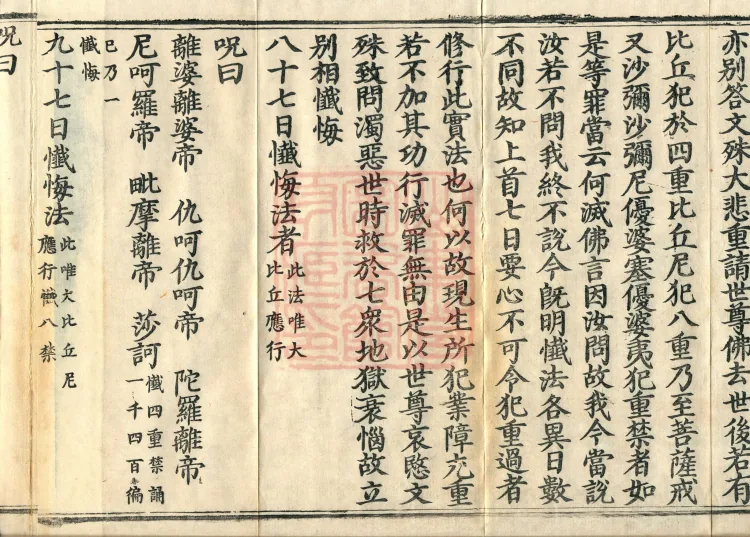 亦別答文殊大悲重請世尊佛去世後若有
比丘犯於四重比丘尼犯八重乃至菩薩戒
又沙彌沙彌尼優婆塞優婆夷犯重禁者如
是等罪當云何滅佛言因汝問故我今當說
汝若不問我終不說今旣明懺法各異日數
不同故知上首七日要心不可令犯重過者
修行此實法也何以故現生所犯業障充重
若不加其功行滅罪無由是以世尊哀愍文
殊致問濁惡世時救於七衆地獄衰惱故立
別相懺悔
八十七日懺悔法者此法唯大
比丘應行
呪曰
離婆離婆帝　仇呵仇呵帝　陀羅離帝
尼呵羅帝　毗摩離帝　莎訶懺四重禁誦
一千四百遍
已乃一
懺悔
九十七日懺悔法此唯大比丘尼
應行懺八禁
呪曰